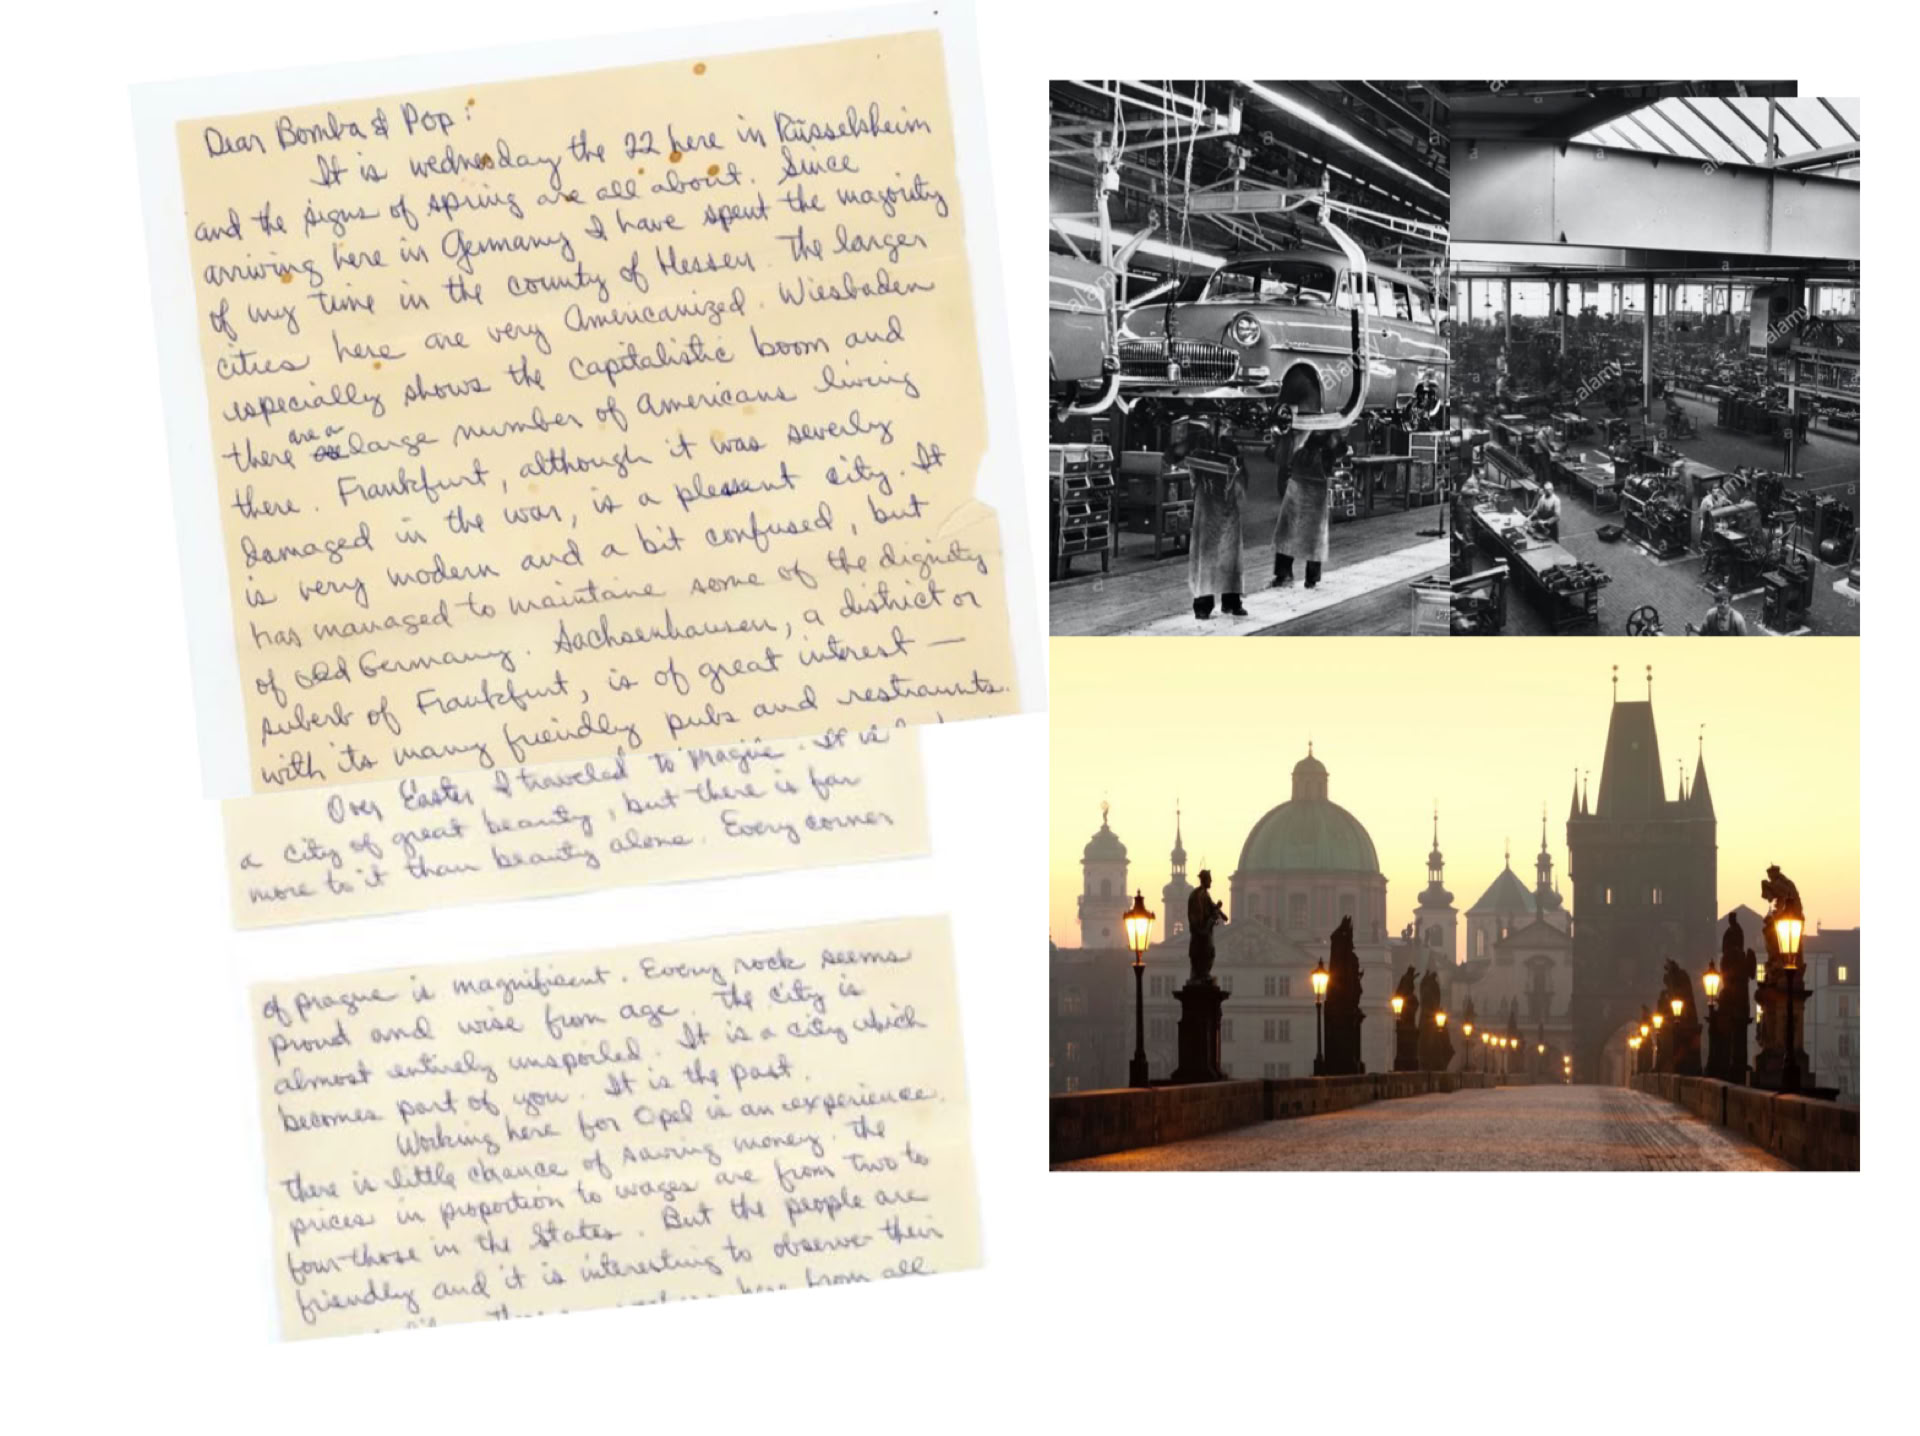 Dear Bomba & Pop:
It is wednesday the 22 here in Rüsselsheim
and the signs of spring are all about. Since
arriving here in Germany I have spent the majority
of my time in the county of Hessen. The larger
cities here are very Americanized. Wiesbaden
especially shows the capitalistic boom and
there are a large number of Americans living
there. Frankfurt, although it was severly
damaged in the war, is a plesent city. It
is very modern and a bit confused, but
has managed to maintaine some of the dignity
of old Germany. Sachsenhausen, a district or
suberb of Frankfurt, is of great interest —
with its many friendly pubs and restraunts.
Over Easter I traveled to Prague. It is
a city of great beauty, but there is far
more to it than beauty alone. Every corner
of prague is magnificent. Every rock seems
proud and wise from age. The city is
almost entirely unspoiled. It is a city which
becomes part of you. It is the past.
Working here for Opel is an experience.
There is little chance of saving money. The
prices in proportion to wages are from two to
four those in the States. But the people are
friendly and it is interesting to observe their
here from all
alamy
alamy
alamy
alamy
alamy